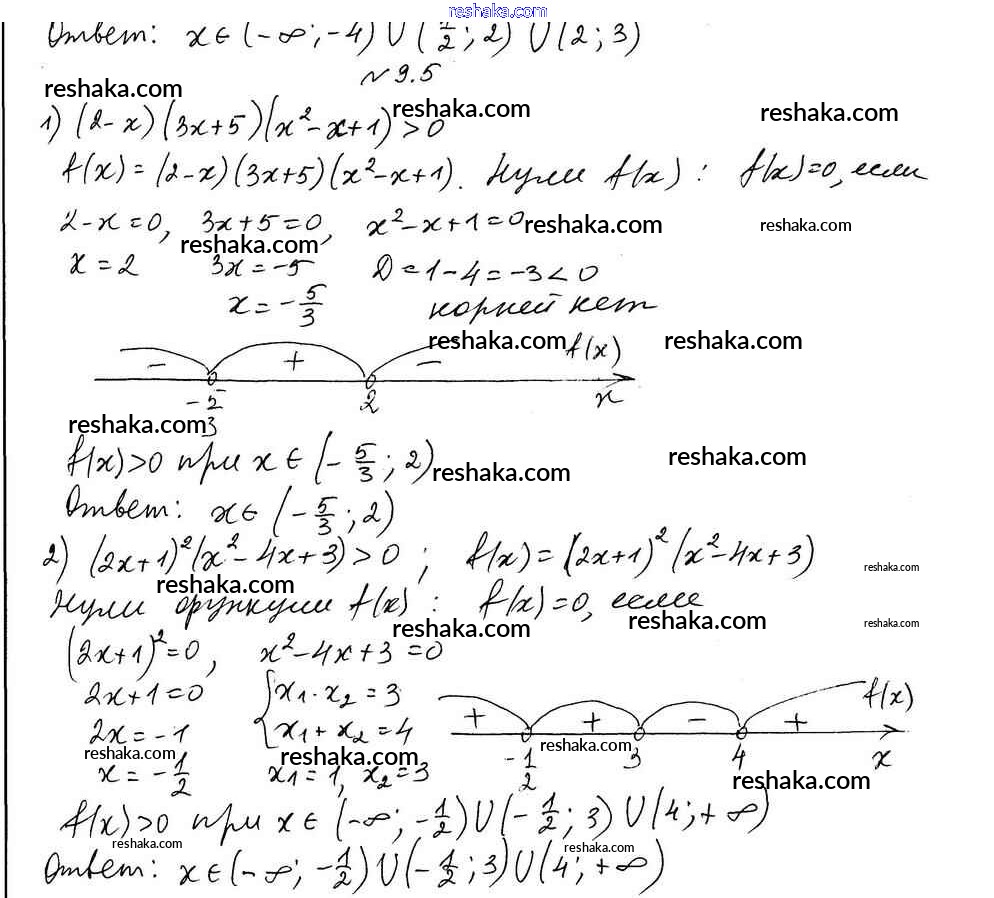 reshaka.com
Ответ: x∈(-∞;-4)∪(1/2;2)∪(2;3)
№9.5
reshaka.com reshaka.com reshaka.com
1) (2-x)(3x+5)(x²-x+1)>0
f(x)=(2-x)(3x+5)(x²-x+1). Нули f(x): f(x)=0, если
2-x=0, 3x+5=0, x²-x+1=0 reshaka.com reshaka.com
reshaka.com
x=2 3x=-5 D=1-4=-3<0
x=-5/3 корней нет
reshaka.com reshaka.com
- + - f(x)
-5/3 2 x
reshaka.com
f(x)>0 при x∈(-5/3;2) reshaka.com reshaka.com
Ответ: x∈(-5/3;2)
2) (2x+1)²(x²-4x+3)>0; f(x)=(2x+1)²(x²-4x+3)
reshaka.com reshaka.com
Нули функции f(x): f(x)=0, если
reshaka.com reshaka.com reshaka.com
(2x+1)²=0, x²-4x+3=0
2x+1=0 {x₁·x₂=3
2x=-1 x₁+x₂=4
+ + - + f(x)
-1/2 3 4 x
reshaka.com reshaka.com reshaka.com
x=-1/2 x₁=1, x₂=3 reshaka.com
f(x)>0 при x∈(-∞;-1/2)∪(-1/2;3)∪(4;+∞)
reshaka.com reshaka.com
Ответ: x∈(-∞;-1/2)∪(-1/2;3)∪(4;+∞)